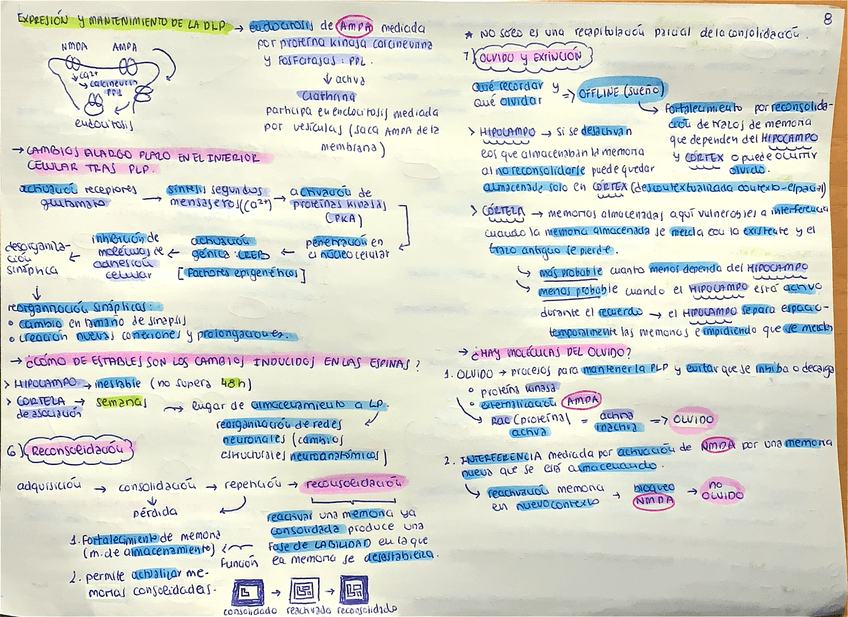 8
EXPRESIÓN Y MANTENIMIENTO DE LA DLP → endocitosis de AMPA mediada
por proteína kinasa calcineurina
y fosfatasas: PPL
↓ activa
Clathrina
participa en endocitosis mediada
por vesículas (saca AMPA de la
membrana)
NMDA AMPA
Ca²⁺
calcineurina
PPL
endocitosis
→ CAMBIOS A LARGO PLAZO EN EL INTERIOR
CELULAR TRAS PLP.
activación receptores → síntesis segundos → activación de
glutamato mensajeros (Ca²⁺) proteínas kinasa
(PKA)
penetración en
el núcleo celular
← activación
génica: CREB
[Factores epigenéticos]
← inhibición de
moléculas de
adhesión
celular
← desorganiza-
ción
sináptica
↓
reorganización sinápticas:
• cambio en tamaño de sinapsis
• creación nuevas conexiones y prolongaciones.
→ ¿CÓMO DE ESTABLES SON LOS CAMBIOS INDUCIDOS EN LAS ESPINAS?
> HIPOCAMPO → inestable (no supera 48h)
> CORTEZA → semanas
de asociación
→ lugar de almacenamiento a LP.
reorganización de redes
neuronales (cambios
estructurales neuroanatómicos)
6) Reconsolidación
adquisición → consolidación → repetición → reconsolidación
↓
pérdida
reactivar una memoria ya
consolidada produce una
FASE DE LABILIDAD en la que
la memoria se desestabiliza.
Función
1. Fortalecimiento de memoria
(m. de almacenamiento)
2. permite actualizar me-
morias consolidadas.
consolidado → reactivado → reconsolidado
* NO SOLO es una recapitulación parcial de la consolidación.
7) OLVIDO Y EXTINCIÓN
qué recordar y
qué olvidar => OFFLINE (sueño)
↳ Fortalecimiento por reconsolida-
ción de trazos de memoria
que dependen del HIPOCAMPO
y CÓRTEX o puede ocurrir
olvido.
> HIPOCAMPO → si se desactivan
los que almacenaban la memoria
al no reconsolidarse puede quedar
almacenada solo en CÓRTEX (descontextualizada contexto-espacial)
> CORTEZA → memorias almacenadas aquí vulnerables a interferencia
cuando la memoria almacenada se mezcla con la existente y el
trazo antiguo se pierde.
↳ más probable cuanto menos dependa del HIPOCAMPO
↳ menos probable cuando el HIPOCAMPO está activo
durante el recuerdo → el HIPOCAMPO separa espacio-
temporalmente las memorias e impidiendo que se mezclen
→ ¿HAY MOLÉCULAS DEL OLVIDO?
1. OLVIDO → procesos para mantener la PLP y evitar que se inhiba o decaiga
• proteína kinasa
• externalización AMPA
↳ Rac (proteína) = actina => OLVIDO
activa inactiva
2. INTERFERENCIA mediada por activación de NMDA por una memoria
nueva que se está almacenando.
↳ reactivación memoria → bloqueo → no
en nuevo contexto NMDA OLVIDO